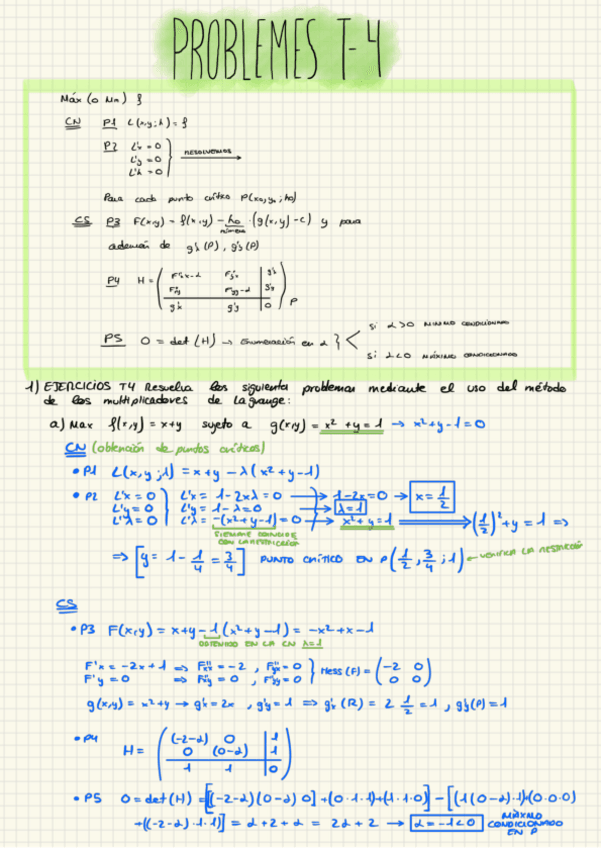 PROBLEMES T-4
Máx (o Mn) f
CN P1 L(x,y;λ) = f
P2 L'x = 0
L'y = 0
L'λ = 0
RESOLVEMOS
Para cada punto crítico P(x₀,y₀;λ₀)
CS P3 F(x,y) = f(x,y) - λ₀ · (g(x,y) - c) y para
número
además de g'x (P), g'y (P)
P4 H = ( F''xx-α F''yx | g'x
F''xy F''yy-α | g'y
g'x g'y | 0 ) P
P5 0 = det (H) → Enumeración en α } si α>0 MINIMO CONDICIONADO
si α<0 MÁXIMO CONDICIONADO
1) EJERCICIOS T4 Resuelva los siguientes problemas mediante el uso del método
de los multiplicadores de Lagrange:
a) Max f(x,y) = x+y sujeto a g(x,y) = x² + y = 1 → x² + y - 1 = 0
CN (obtención de puntos críticos)
• P1 L(x,y;λ) = x+y - λ(x²+y-1)
• P2 L'x = 0 L'x = 1-2xλ = 0 → 1-2x = 0 → x = 1/2
L'y = 0 L'y = 1-λ = 0 → λ = 1
L'λ = 0 L'λ = -(x²+y-1) = 0 → x²+y = 1 ⟹ (1/2)² + y = 1 =>
SIEMPRE COINCIDE
CON LA RESTRICCIÓN
=> [y = 1 - 1/4 = 3/4] PUNTO CRÍTICO EN P(1/2, 3/4; 1) ← VERIFICA LA RESTRICCIÓN
CS
• P3 F(x,y) = x+y - 1 (x²+y-1) = -x²+x-1
OBTENIDO EN LA CN λ=1
F'x = -2x+1 => F''xx = -2 , F''yx = 0 } Hess (F) = (-2 0
F'y = 0 => F''xy = 0 , F''yy = 0 0 0)
g(x,y) = x²+y → g'x = 2x , g'y = 1 => g'x (R) = 2 1/2 = 1 , g'y(P) = 1
• P4
H = ( (-2-α) 0 | 1
0 (0-α) | 1
1 1 | 0 )
• P5 0 = det (H) = [(-2-α)(0-α) 0] + (0·1·1)+(1·1·0)] - [(1(0-α)·1)+(0·0·0)
+((-2-α)·1·1)] = α + 2 + α = 2α + 2 → α = -1 < 0 MÁXIMO
CONDICIONADO
EN P